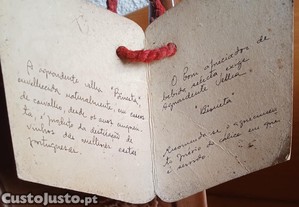 A aguardente velha "Bisneta"
envelhecida naturalmente, em cascos
de carvalho, desde os anos
é produto da destilação de
vinhos das melhores castas
portuguesas.
O bom apreciador de
bebida selecta exige
aguardente velha
"Bisneta"
Recomenda-se o aquecimento
do cálice em que
é servida
CustoJusto.pt